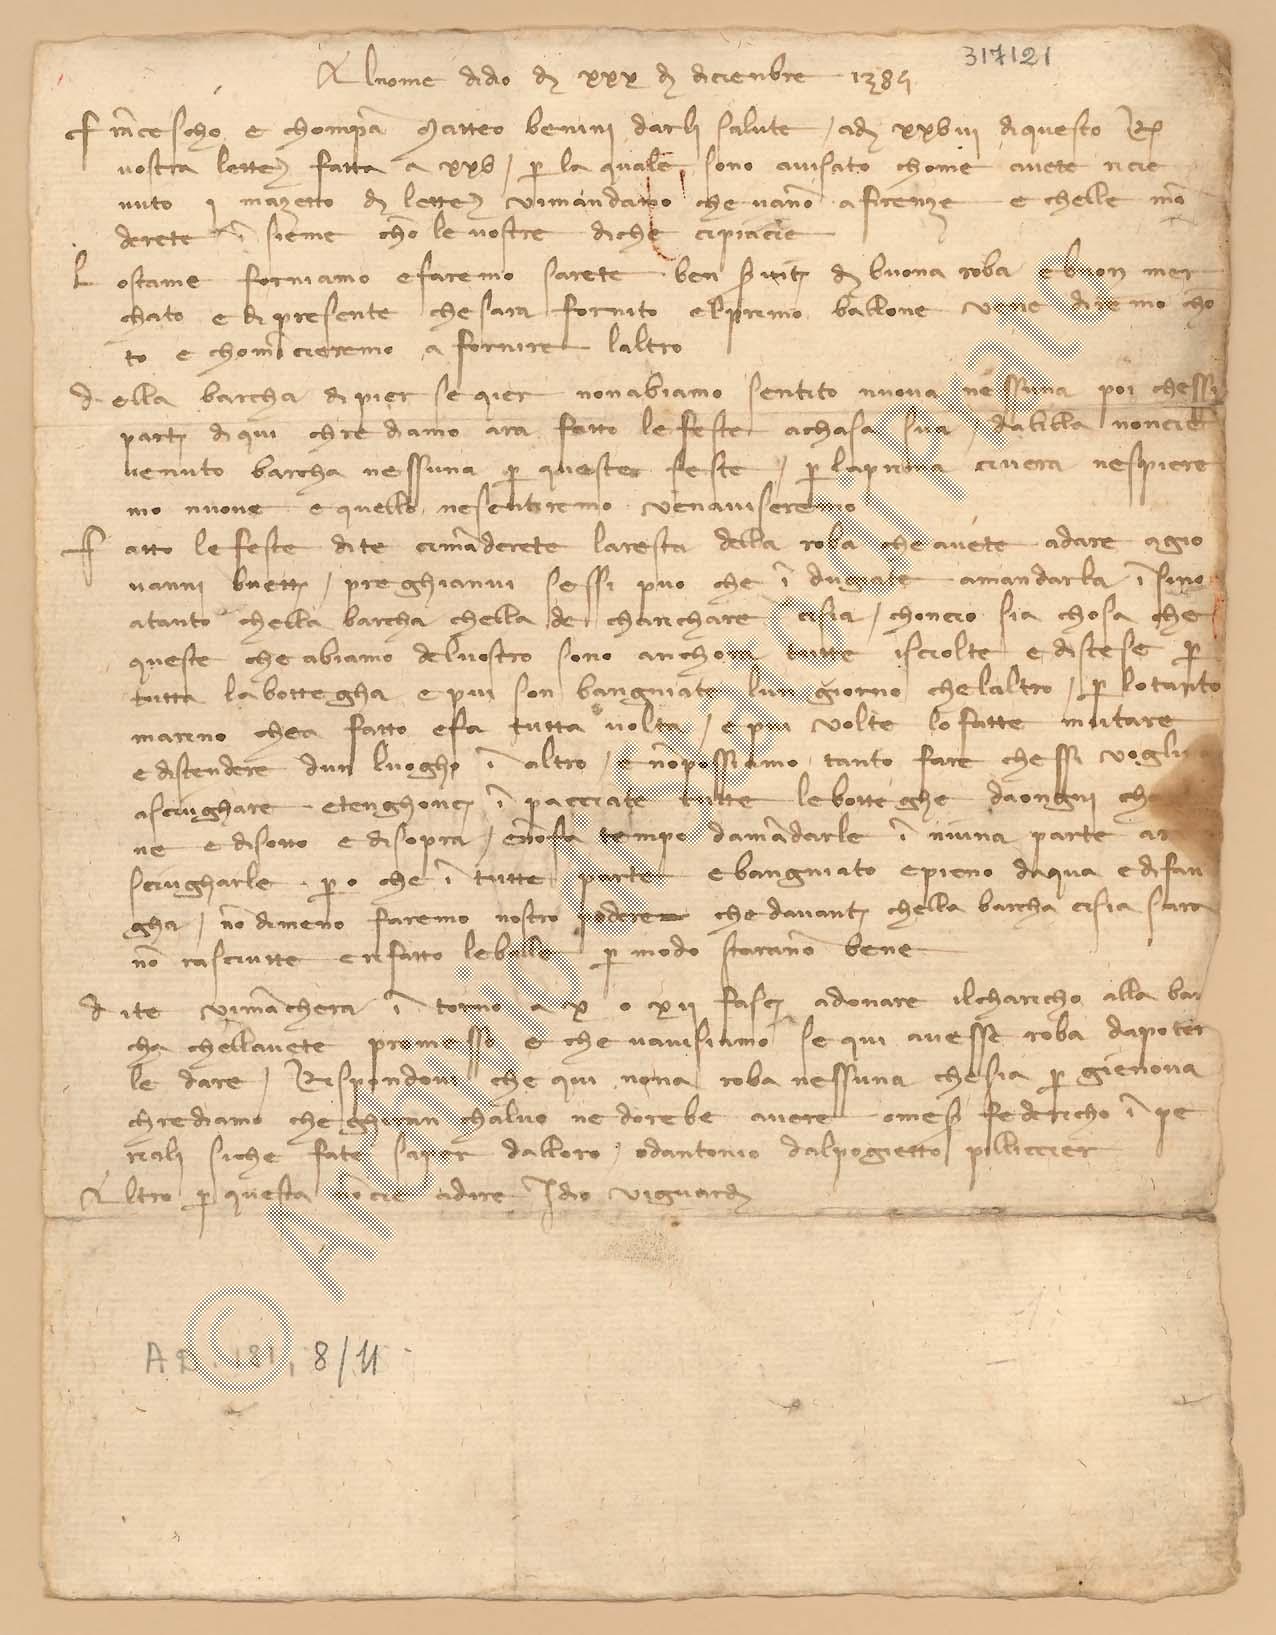 317121
Al nome di dio dì xxx di diciembre 1384
Franciescho e chonpa Matteo benini darli salute / adi xxviii di questo R
vostra lettera fatta a xxv / p la quale sono avisato chome avete ricie
vuto j mazetto di lettere vi mandamo che vano a firenze e chelle man
derete i sieme cho le vostre di che ci piacie
Lo stame forniamo e faremo sarete ben serviti di buona roba e buon mer
chato e di presente che sara fornito el primo ballone ve ne diremo cho
to e chominceremo a fornire laltro
della barcha di pier sequier non abiamo sentito nuova nessuna poi chessi
parti di qui chrediamo ara fatto le feste a chasa sua / dalilla non cie
venuto barcha nessuna p queste feste / p la prima ci vera ne spiere
mo nuove e quello ne sentiremo ve naviseremo
fatto le feste dite ci manderete laresta della roba che avete a dare a gio
vanni buetti / preghianvi sessi puo che i dugiate a mandarla i sino
a tanto chella barcha chella de charichare ci sia / choncio sia chosa che
queste che abiamo del vostro sono anchora tutte isciolte e distese p
tutta la bottegha e piu son bangniate lun giorno chelaltro / p lo tanto
mareno chea fatto e fa tutta volta / e piu volte lo fatte mutare
e distendere dun luogho i altro / e no possiamo tanto fare chessi voglino
asciughare e tenghonci i pacciate tutte le botteghe da ongni
ne e di sotto e di sopra / e no fa tempo da mandarle i niuna parte a
sciugharle p o che i tutte parte e bangniato e pieno daqua e di fan
gha / no dimeno faremo nostro podere che davanti chella barcha ci sia sara
no rasciutte e rifatto le balle p modo starano bene
dite vi manchera i torno a x o xii fasci a donare il charicho alla bar
cha chellavete promesso e che vavisiamo se qui avesse roba da poter
le dare / Rispondovi che qui nona roba nessuna che sia p gienova
chrediamo che gheran chalvo ne dorebe avere o meser federicho i pe
riali siche fate saper dalloro / o dantonio dal pogietto pilliccier
Altro p questa no cie a dire Idio vi guardi
A P 181, 8/11
© Archivio di Stato di Prato